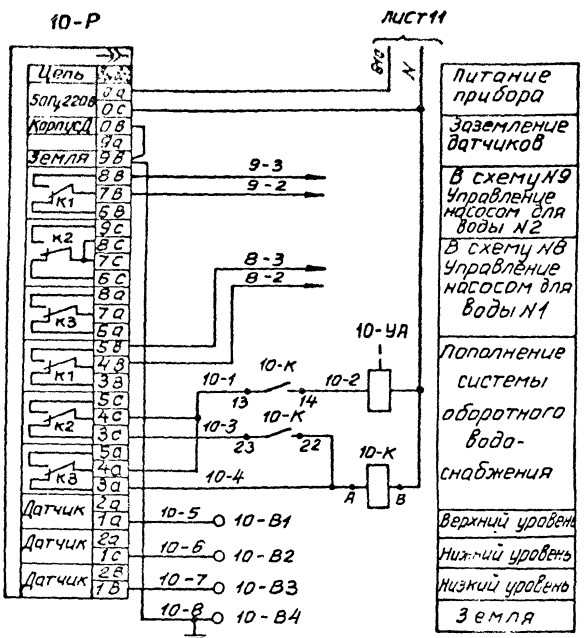 10-Р
лист 11
Цепь
50Гц 220В
Корпус Д
Земля
0а
0с
0в
9а
9в
8в
7в
6в
9с
8с
7с
6с
8а
7а
6а
5в
4в
3в
5с
4с
3с
5а
4а
3а
2а
1а
2а
1с
2в
1в
К1
К2
К3
К1
К2
К3
Датчик
Датчик
Датчик
N
9-3
9-2
8-3
8-2
10-УА
10-1
10-К
10-2
13
14
10-3
10-К
23
22
10-К
10-4
А
В
10-5
10-В1
10-6
10-В2
10-7
10-В3
10-8
10-В4
Питание
прибора
Заземление
датчиков
В схему N9
Управление
насосом для
воды N2
В схему N8
Управление
насосом для
воды N1
Пополнение
системы
оборотного
водо-
снабжения
Верхний уровень
Нижний уровень
Низкий уровень
Земля